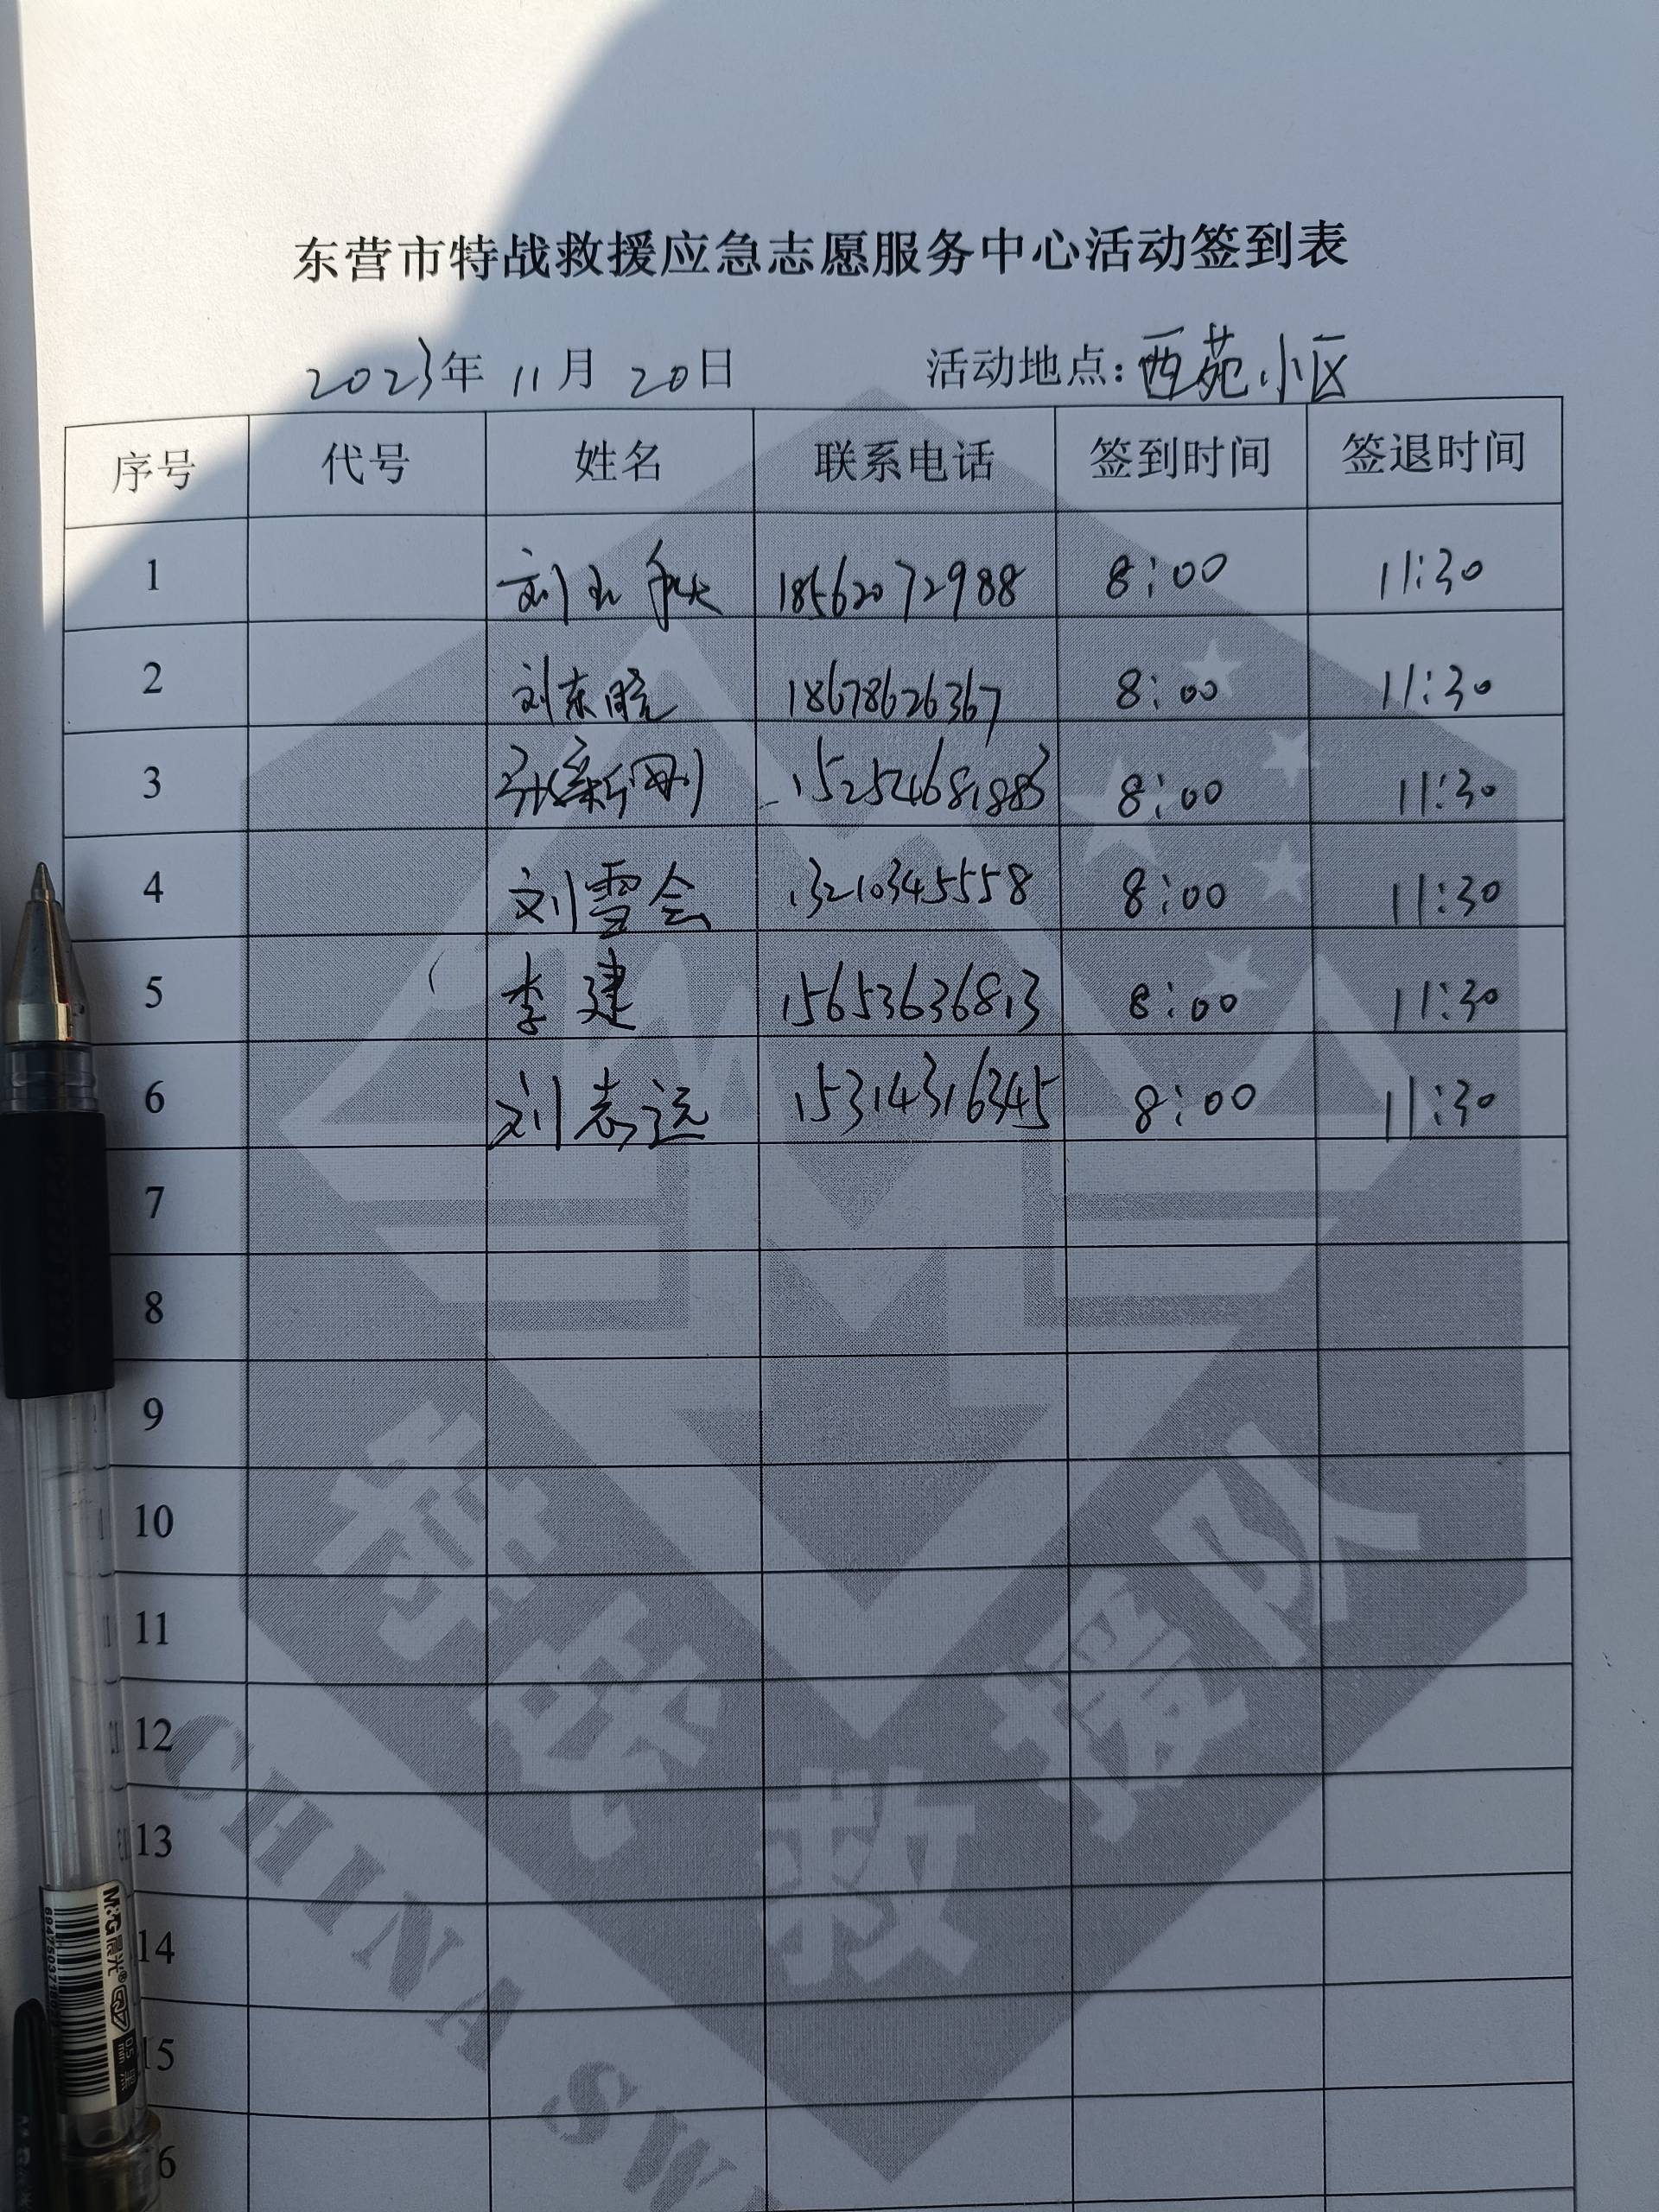 东营市特战救援应急志愿服务中心活动签到表
2023年 11月 20日 活动地点:西苑小区
序号 代号 姓名 联系电话 签到时间 签退时间
1 刘 18562072988 8:00 11:30
2 刘东晓 18678626367 8:00 11:30
3 孙新刚 152524681883 8:00 11:30
4 刘雪会 13210345558 8:00 11:30
5 李建 15653636813 8:00 11:30
6 刘志远 15314316345 8:00 11:30
7
8
9
10
11
12
13
14
15
6
特战救援队
CHINA SW
M&G晨光
0.5mm 黑